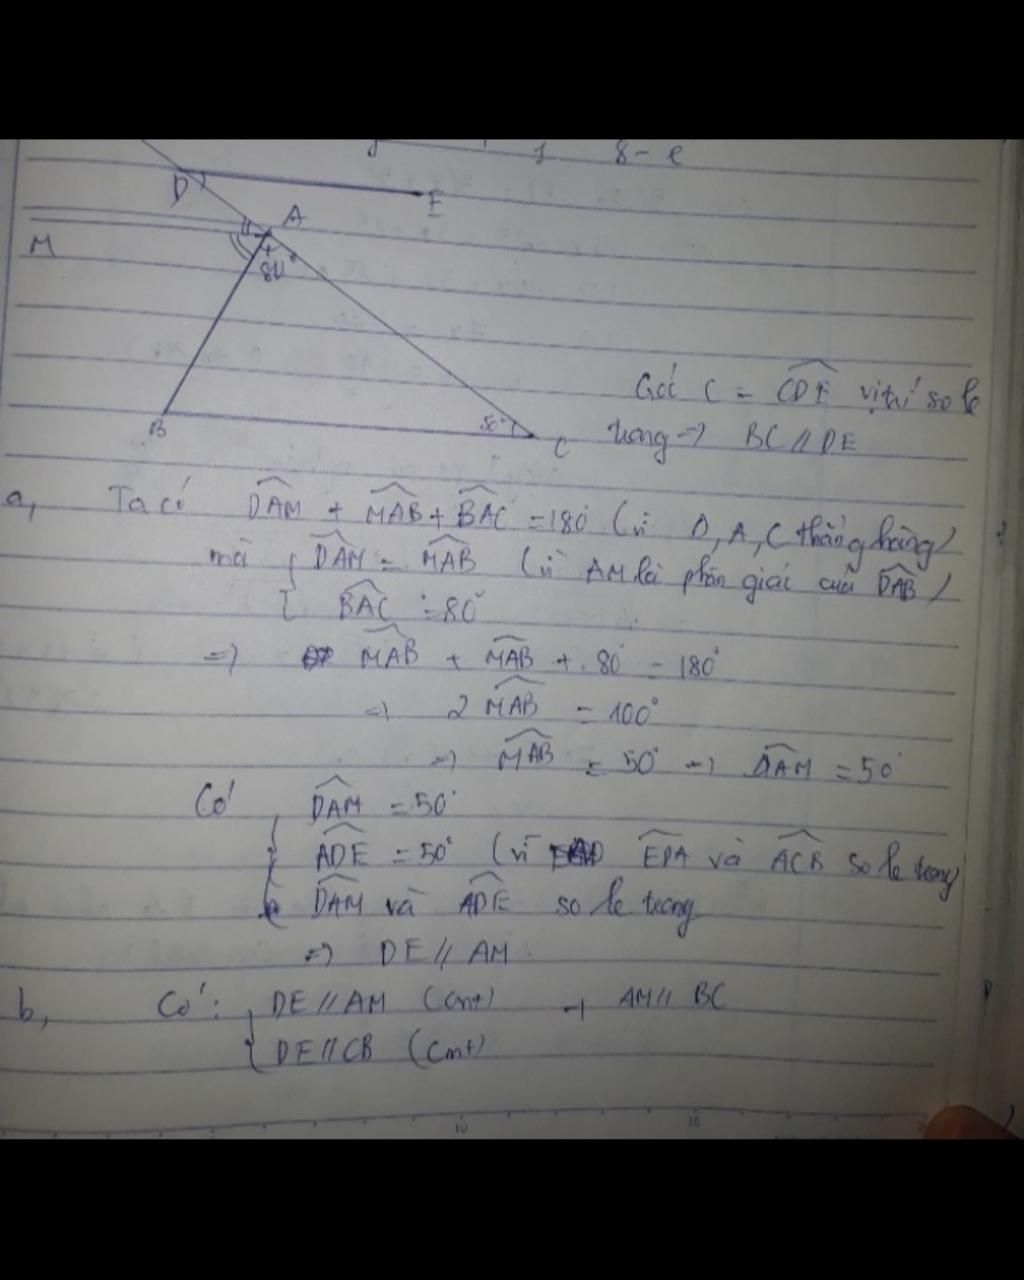 8 - e
D
E
A
M
80°
B
50°
C
Góc C = CDE vị trí so le
trong => BC // DE
a, Ta có DAM + MAB + BAC = 180 (vì D, A, C thẳng hàng)
mà { DAM = MAB (vì AM là phân giác của DAB)
BAC = 80°
=> MAB + MAB + 80° = 180°
=> 2 MAB = 100°
=> MAB = 50° => DAM = 50°
Có { DAM = 50°
ADE = 50° (vì EDA và ACB so le trong
DAM và ADE so le trong
=> DE // AM
b, Có: { DE // AM (cmt) => AM // BC
DE // CB (cmt)
10